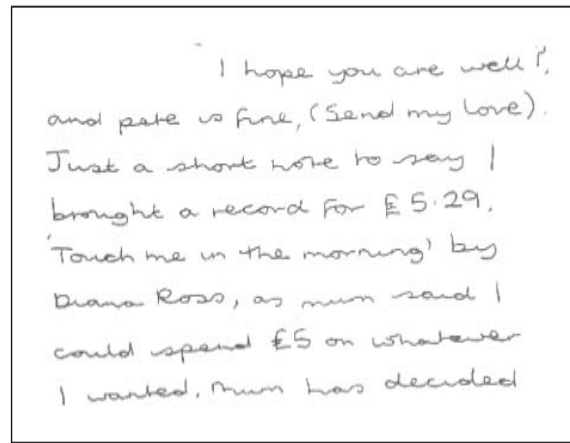 I hope you are well?,
and pete is fine, (Send my love).
Just a short note to say I
brought a record for £5.29,
'Touch me in the morning' by
Diana Ross, as mum said I
could spend £5 on whatever
I wanted. Mum has decided